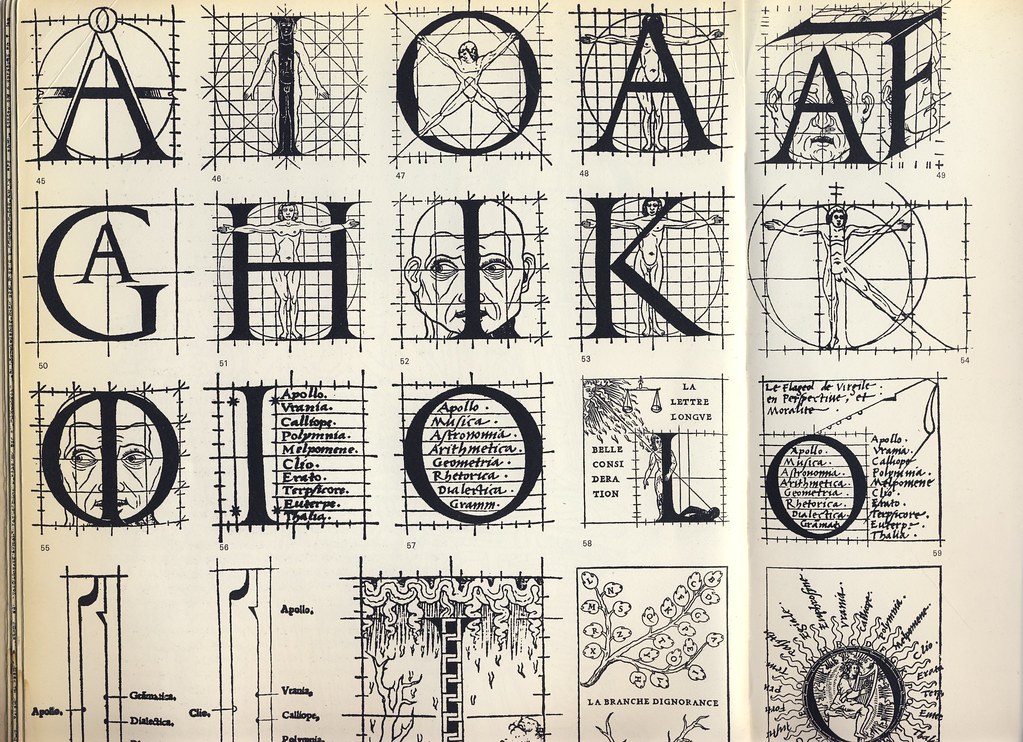 A
I
O
A
A F
45
46
47
48
49
G A
H
I
K
K
50
51
52
53
54
O I
I
Apollo.
Vrania.
Calliope.
Polymnia.
Melpomene.
Clio.
Erato.
Terpsicore.
Euterpe.
Thalia.
O
Apollo.
Musica.
Astronomia.
Arithmetica.
Geometria.
Rhetorica.
Dialectica.
Gramm.
LA
LETTRE
LONGVE
BELLE
CONSI
DERA
TION
L
Le Flageol de Virgile.
en Perspective, et
Moralite.
O
Apollo.
Musica.
Astronomia.
Arithmetica.
Geometria.
Rhetorica.
Dialectica.
Gramat.
Apollo.
Vrania.
Calliope
Polymnia.
Melpomene
Clio.
Erato.
Terpsicore.
Euterpe.
Thalia.
55
56
57
58
59
Apollo.
Grãmatica.
Dialectica.
Apollo,
Clio.
Vrania,
Calliope,
Polymnia.
I
LA BRANCHE DIGNORANCE
O
Vrania.
Calliope.
Melpomene.
Clio.